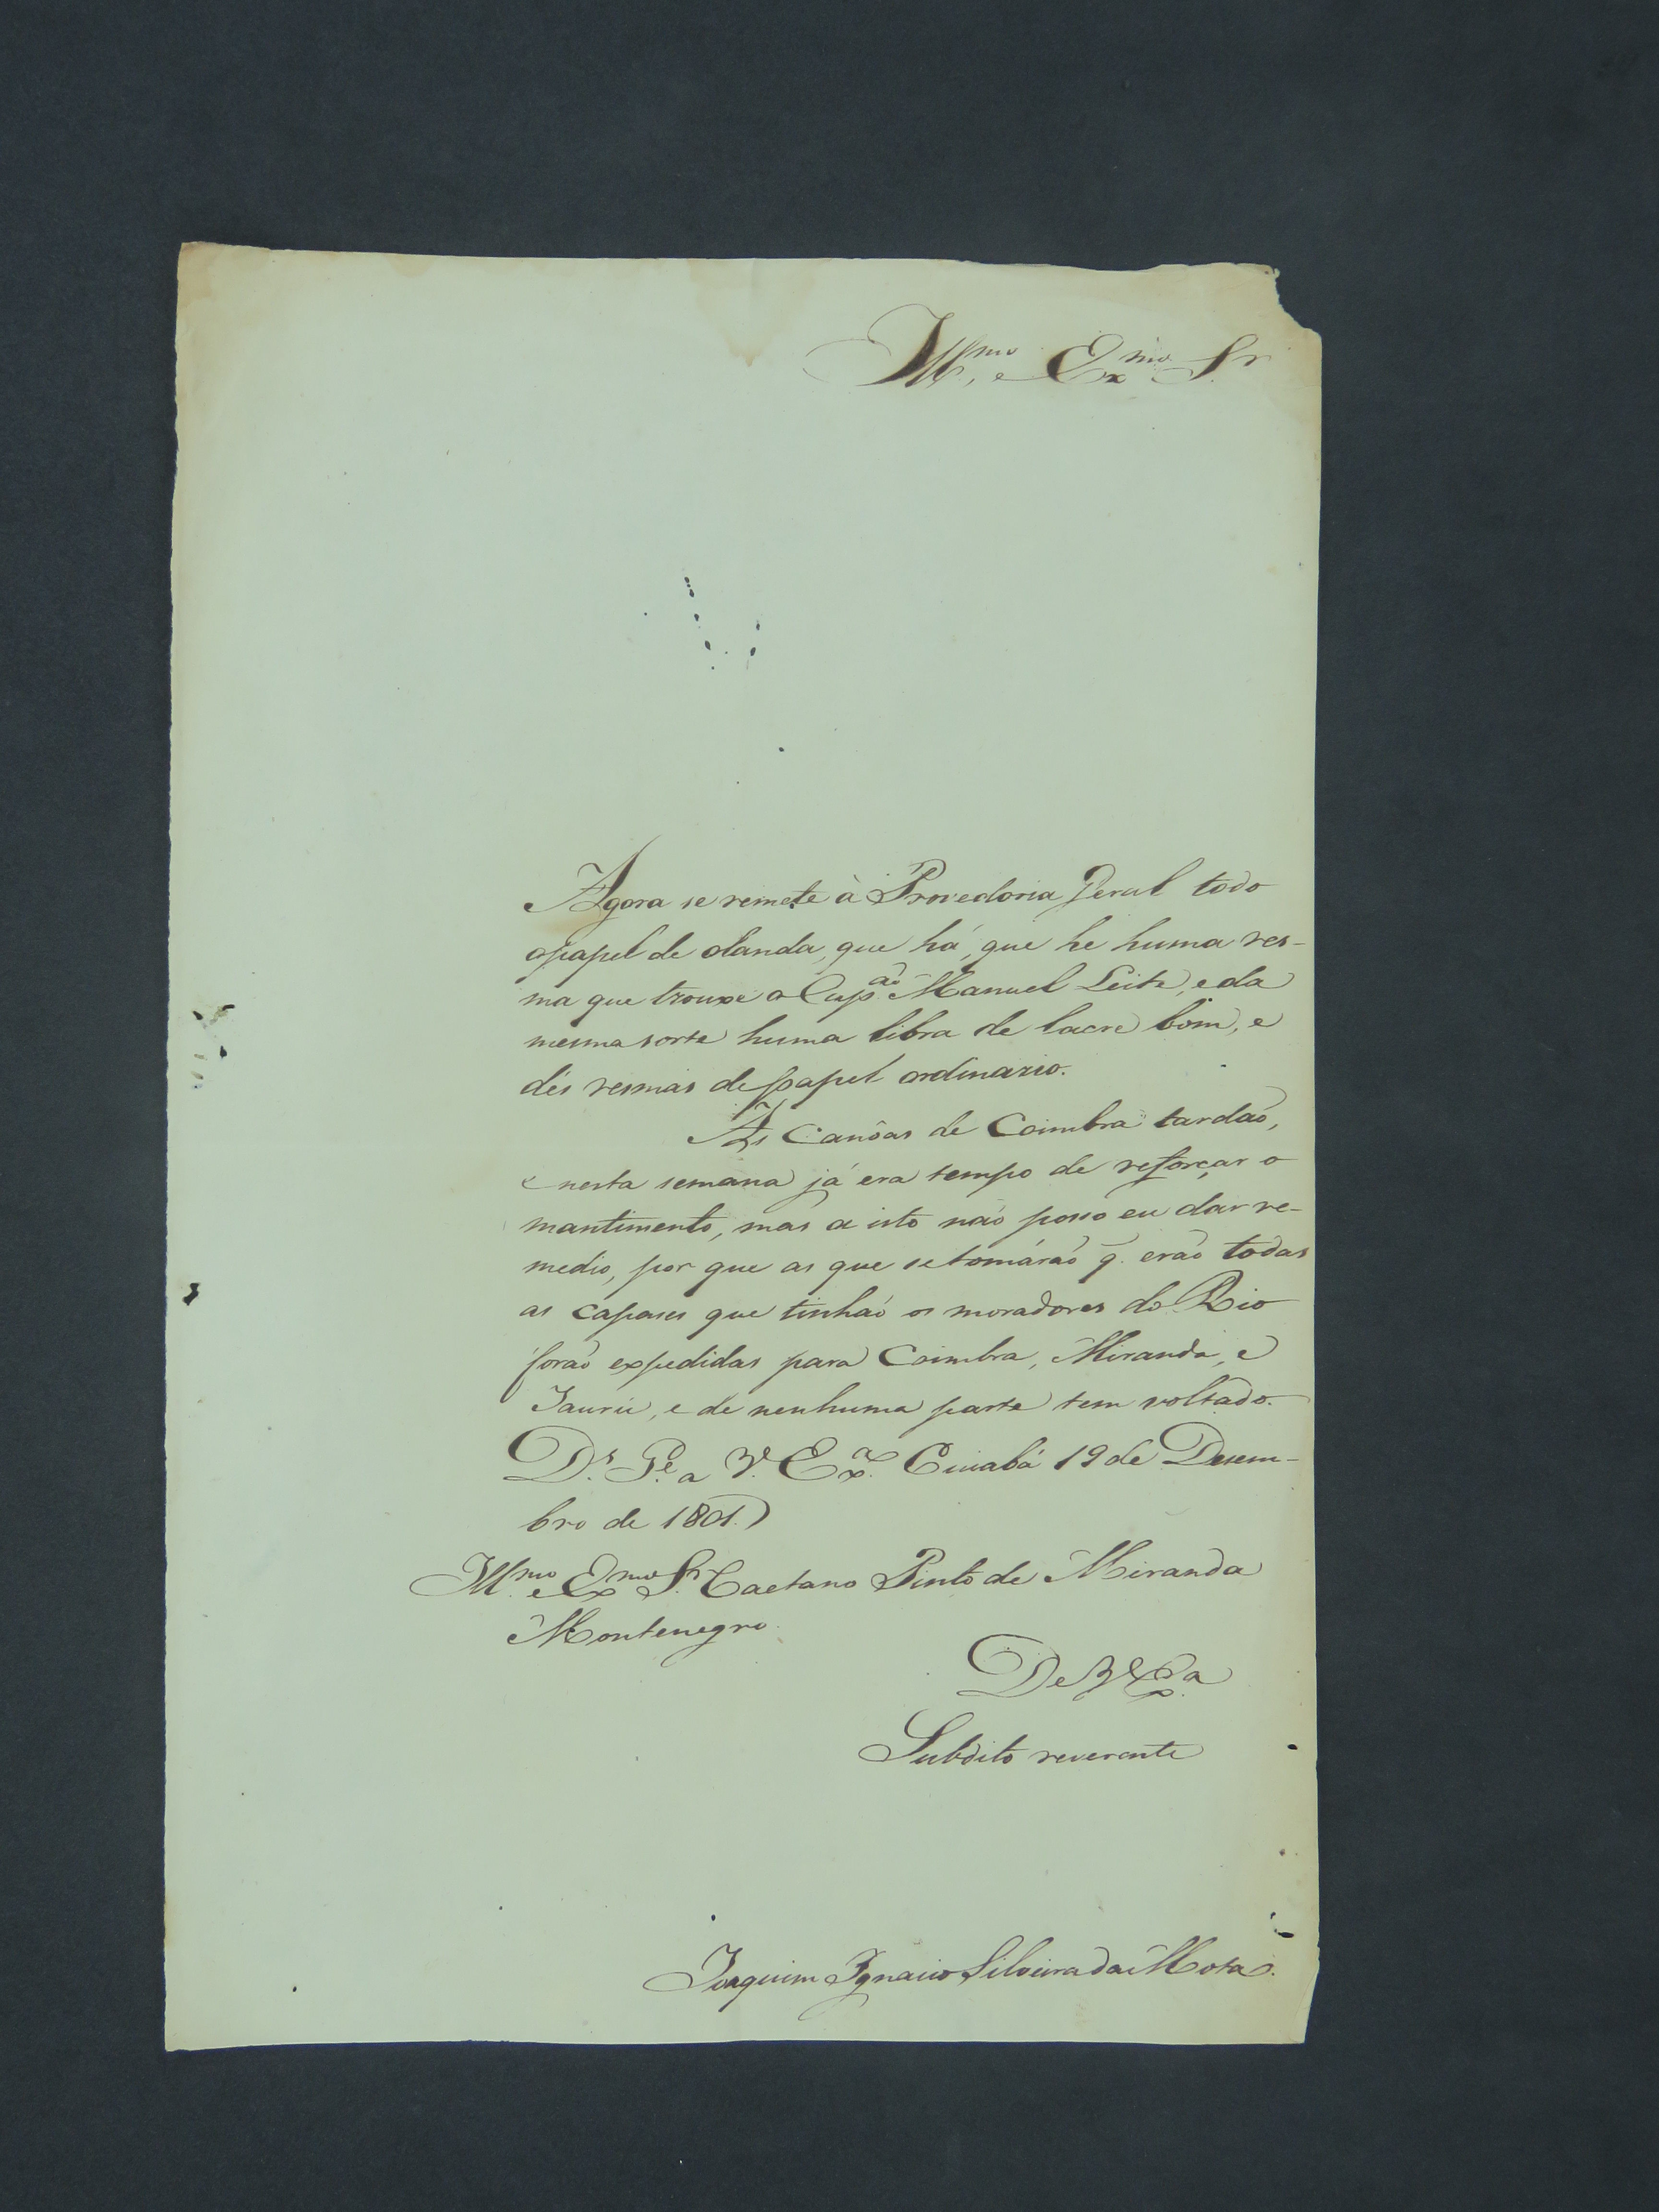 Ill.mo e Ex.mo S.r
Agora se remete à Provedoria Geral todo
opapel de olanda, que há, que he huma res-
ma que trouxe o Cap.ão Manuel Leite, e da
mesma sorte huma libra de lacre bom, e
dés resmas de papel ordinario.
As Canôas de Coimbra tardão,
e nesta semana já era tempo de reforçar o
mantimento, mas a isto não posso eu dar re-
medio, por que as que se tomárão q. erão todas
as capases que tinhão os moradores do Rio
forão expedidas para Coimbra, Miranda, e
Jaurú, e de nenhuma parte tem voltado.
D.s G.e a V. Ex.a Cuiabá 19 de Desem-
bro de 1801.
Ill.mo e Ex.mo S.r Caetano Pinto de Miranda
Montenegro
De V. Ex.a
Subdito reverente
Joaquim Ignacio Silveira da Mota.